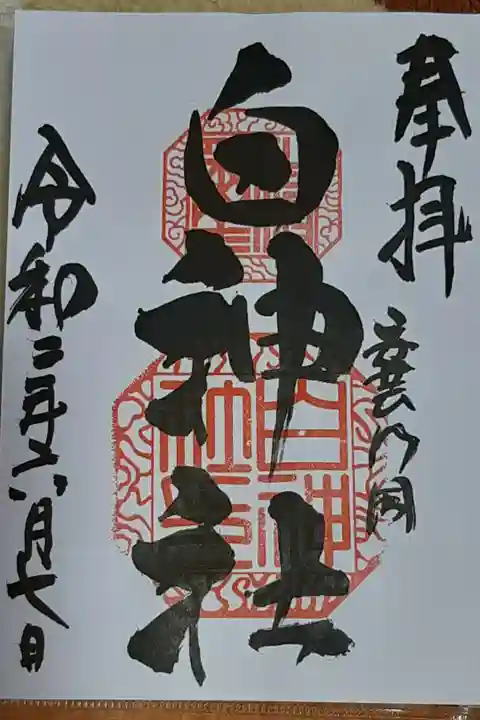 奉拝
白神社
令和二年六月七日
白神
社印